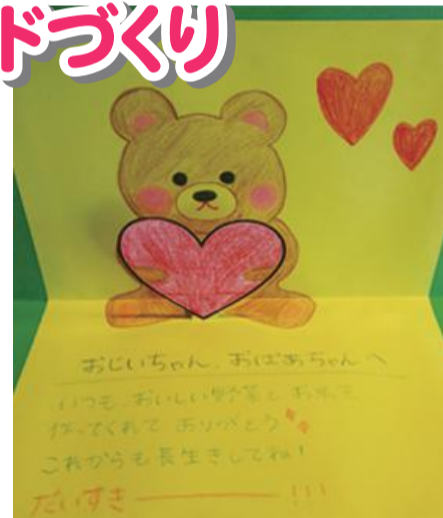 ドづくり
おじいちゃん、おばあちゃんへ
いつも、おいしい野菜とお米を
作ってくれて ありがとう
これからも長生きしてね！
だいすき────!!!